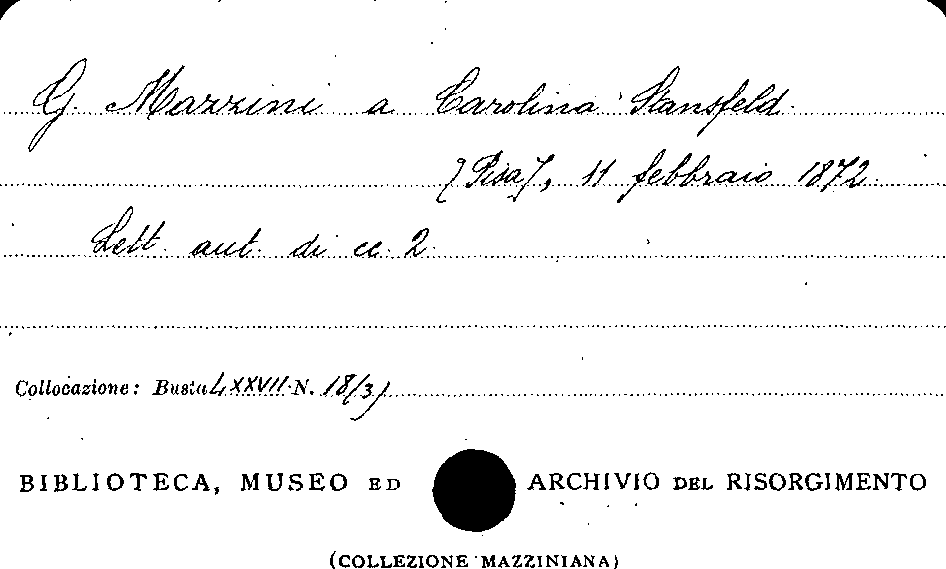 G. Mazzini a Carolina Stansfeld.
[Pisa], 11 febbraio 1872.
Lett. aut. di cc. 2.
Collocazione: Busta LXXVII N. 18(3)
BIBLIOTECA, MUSEO ED ARCHIVIO DEL RISORGIMENTO
(COLLEZIONE MAZZINIANA)